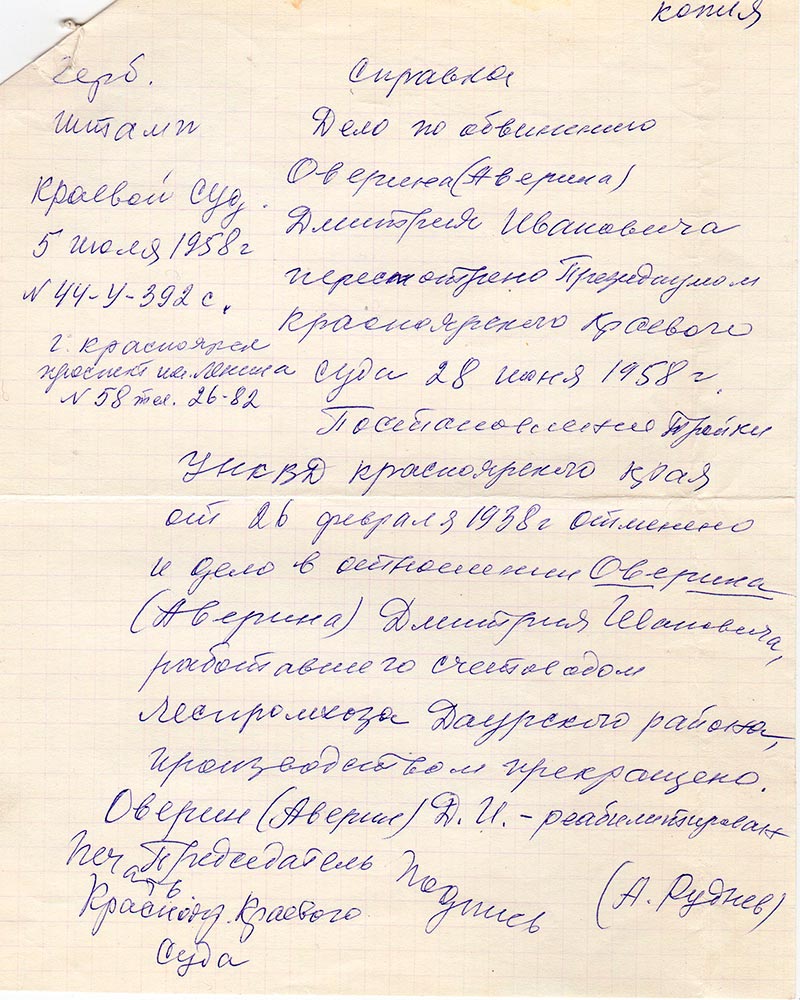 копия
герб.
штамп
Краевой суд.
5 июля 1958 г
N 44-У-392 с.
г. Красноярск
проспект им. Ленина
N 58 тел. 26-82
Справка
Дело по обвинению
Оверина (Аверина)
Дмитрия Ивановича
пересмотрено Президиумом
Красноярского Краевого
суда 28 июня 1958 г.
Постановление Тройки
УНКВД Красноярского края
от 26 февраля 1938 г отменено
и дело в отношении Оверина
(Аверина) Дмитрия Ивановича,
работавшего счетоводом
Леспромхоза Даурского района,
производством прекращено.
Оверин (Аверин) Д. И. - реабилитирован
Печать Председатель подпись (А. Руднев)
Краснояр. Краевого
Суда